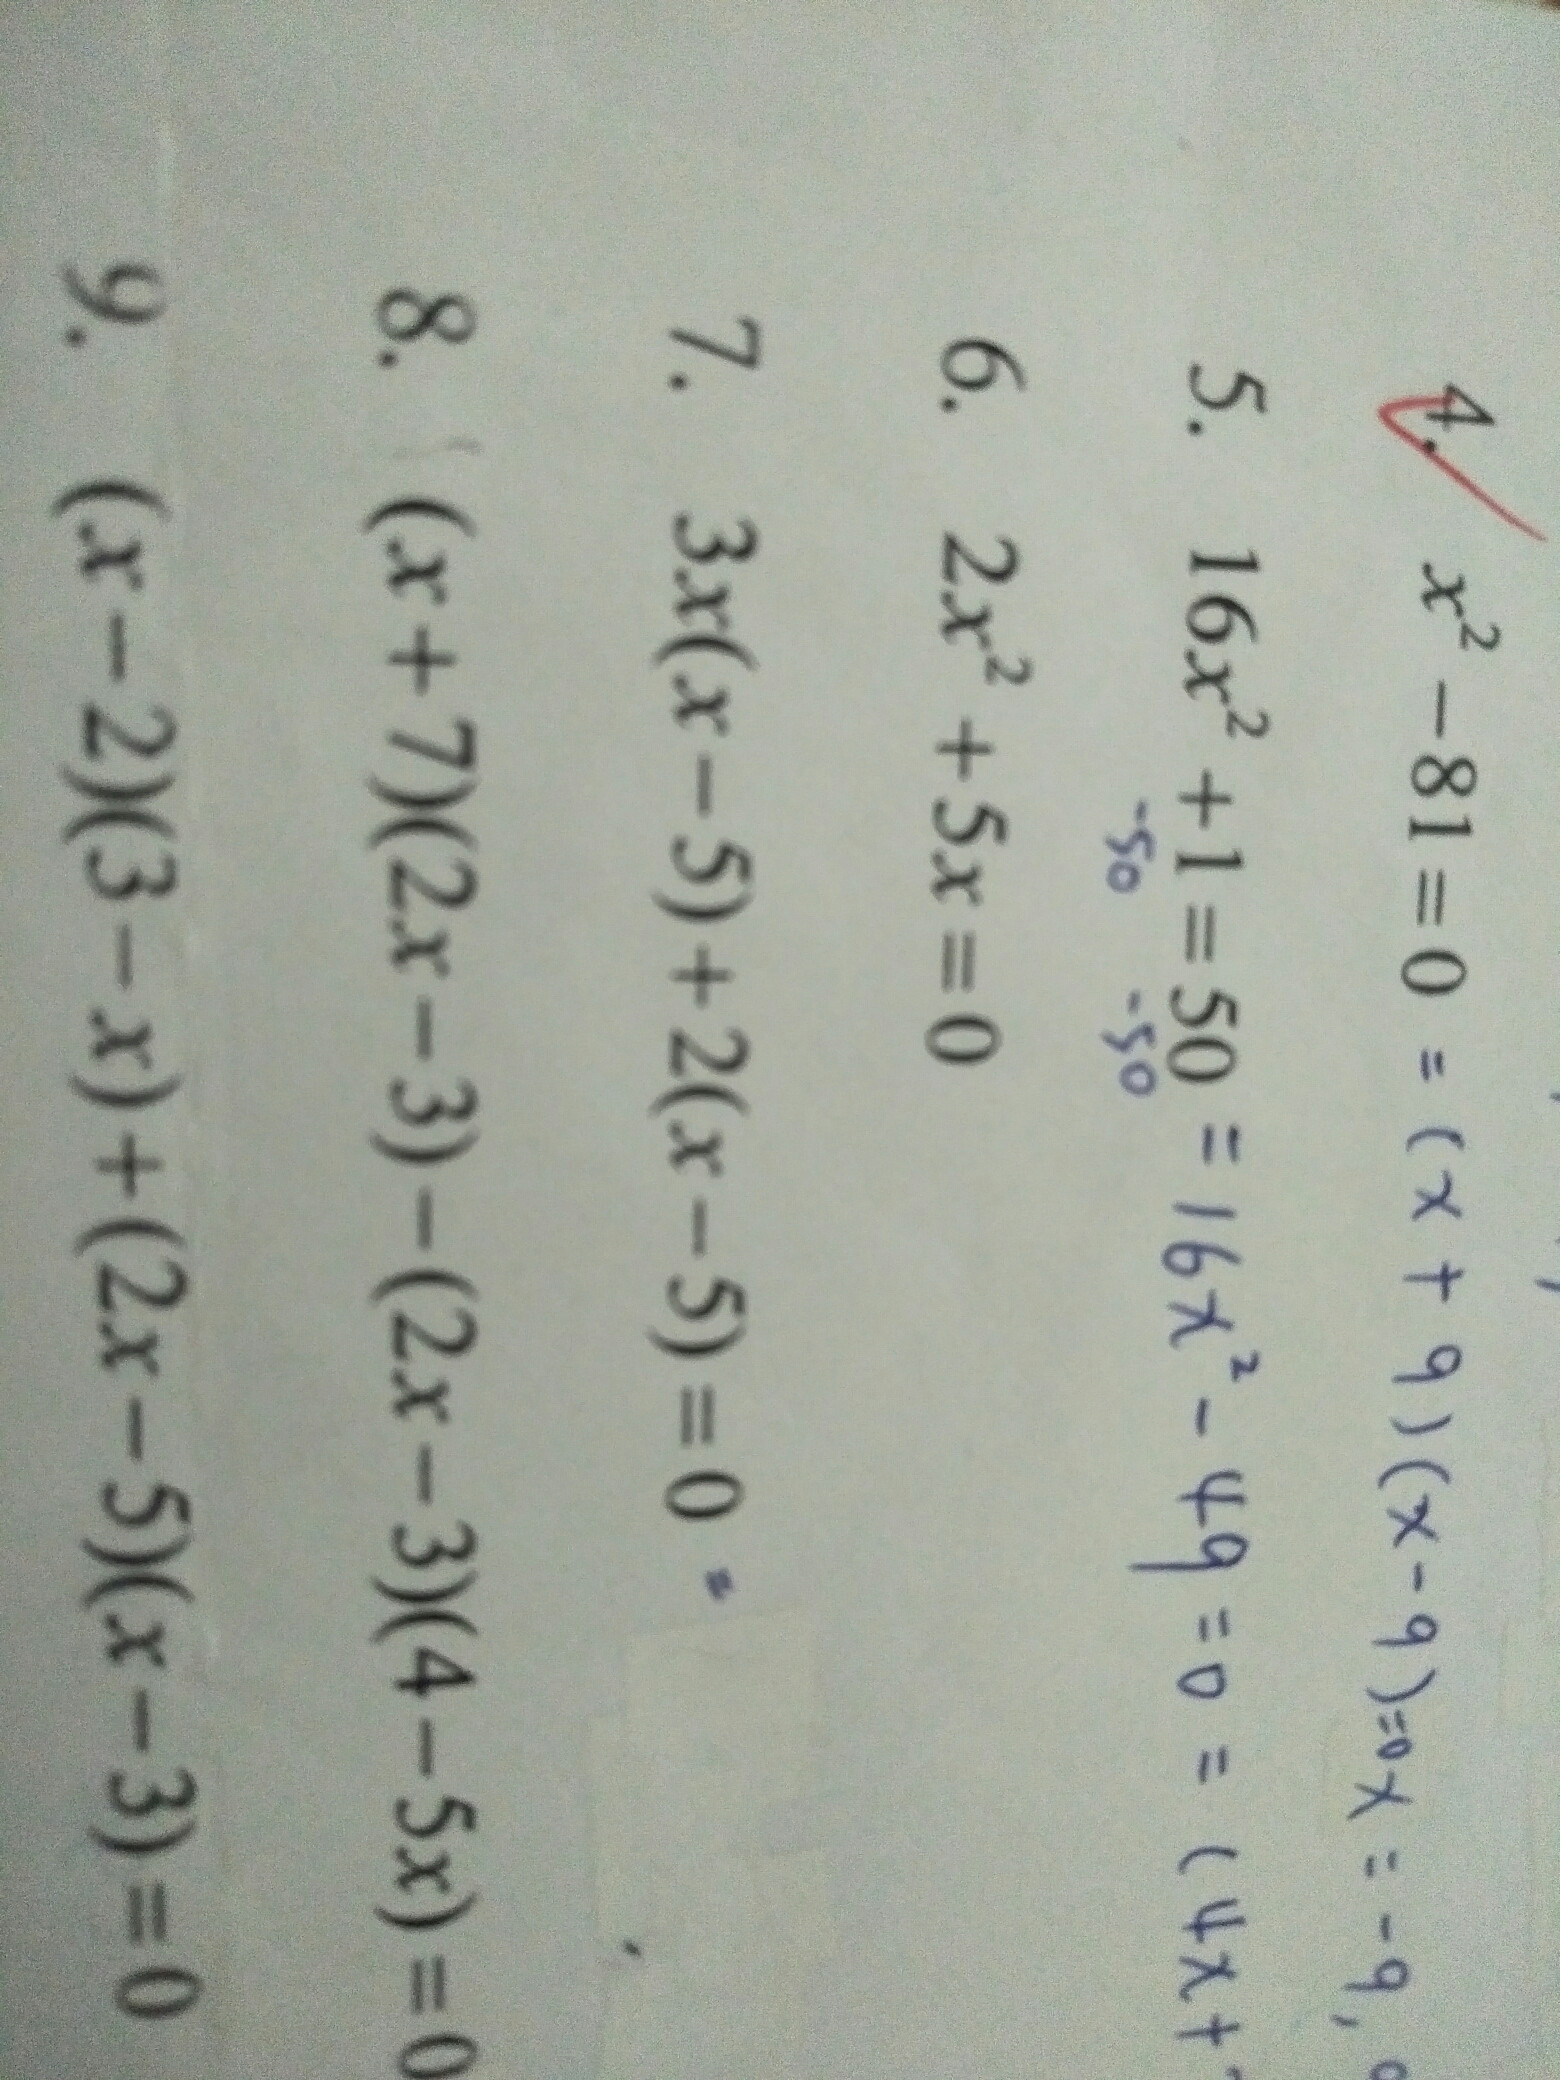 4. x² – 81 = 0 = (x + 9)(x - 9)=0 x = -9,
5. 16x² + 1 = 50 = 16x² - 49 = 0 = (4x+
-50 -50
6. 2x² + 5x = 0
7. 3x(x – 5) + 2(x – 5) = 0 =
8. (x + 7)(2x – 3) – (2x – 3)(4 – 5x) = 0
9. (x – 2)(3 – x) + (2x – 5)(x – 3) = 0